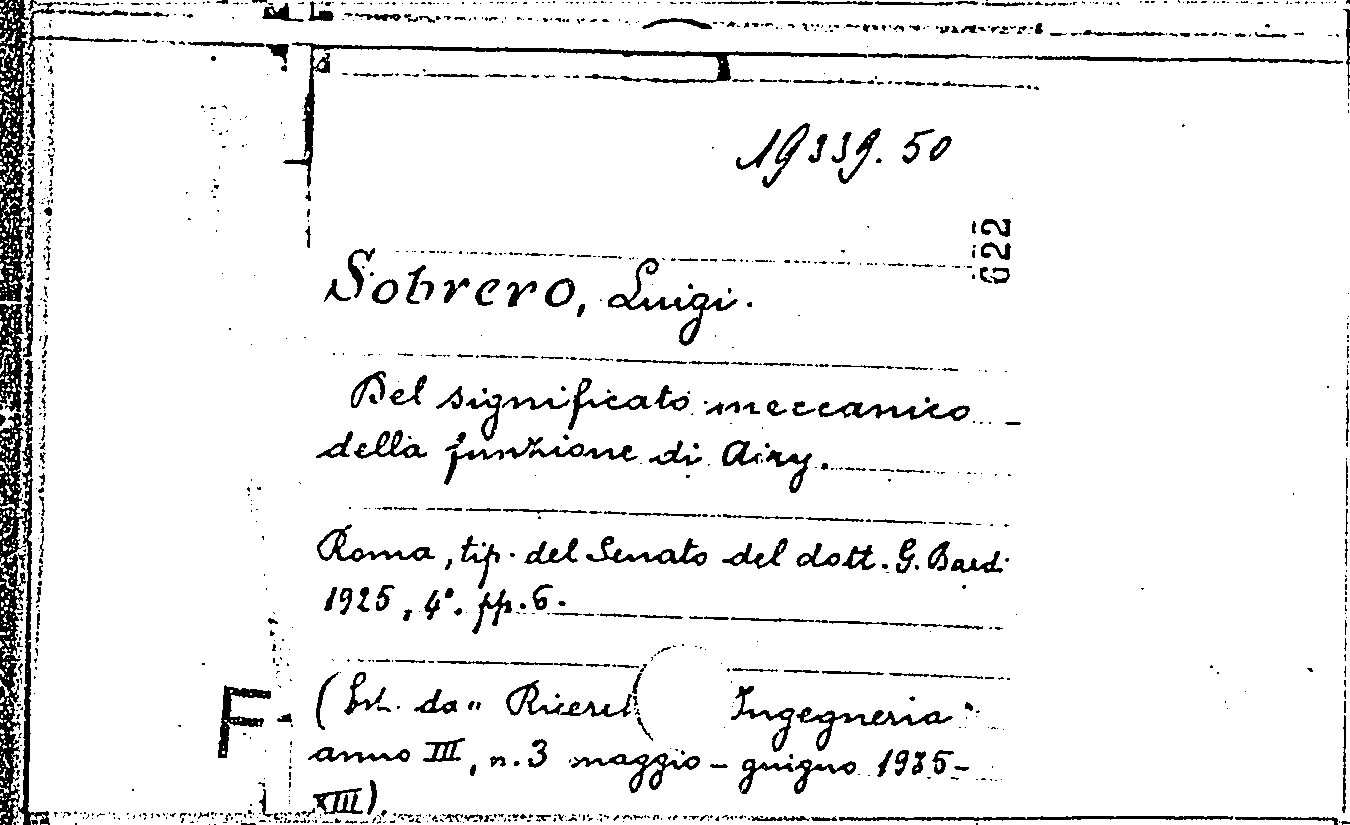 19339.50
622
Sobrero, Luigi.
Del significato meccanico
della funzione di Airy.
Roma, tip. del Senato del dott. G. Bardi
1925, 4°. pp. 6.
(Est. da " Ingegneria"
anno III, n. 3 maggio - guigno 1935-
XIII).